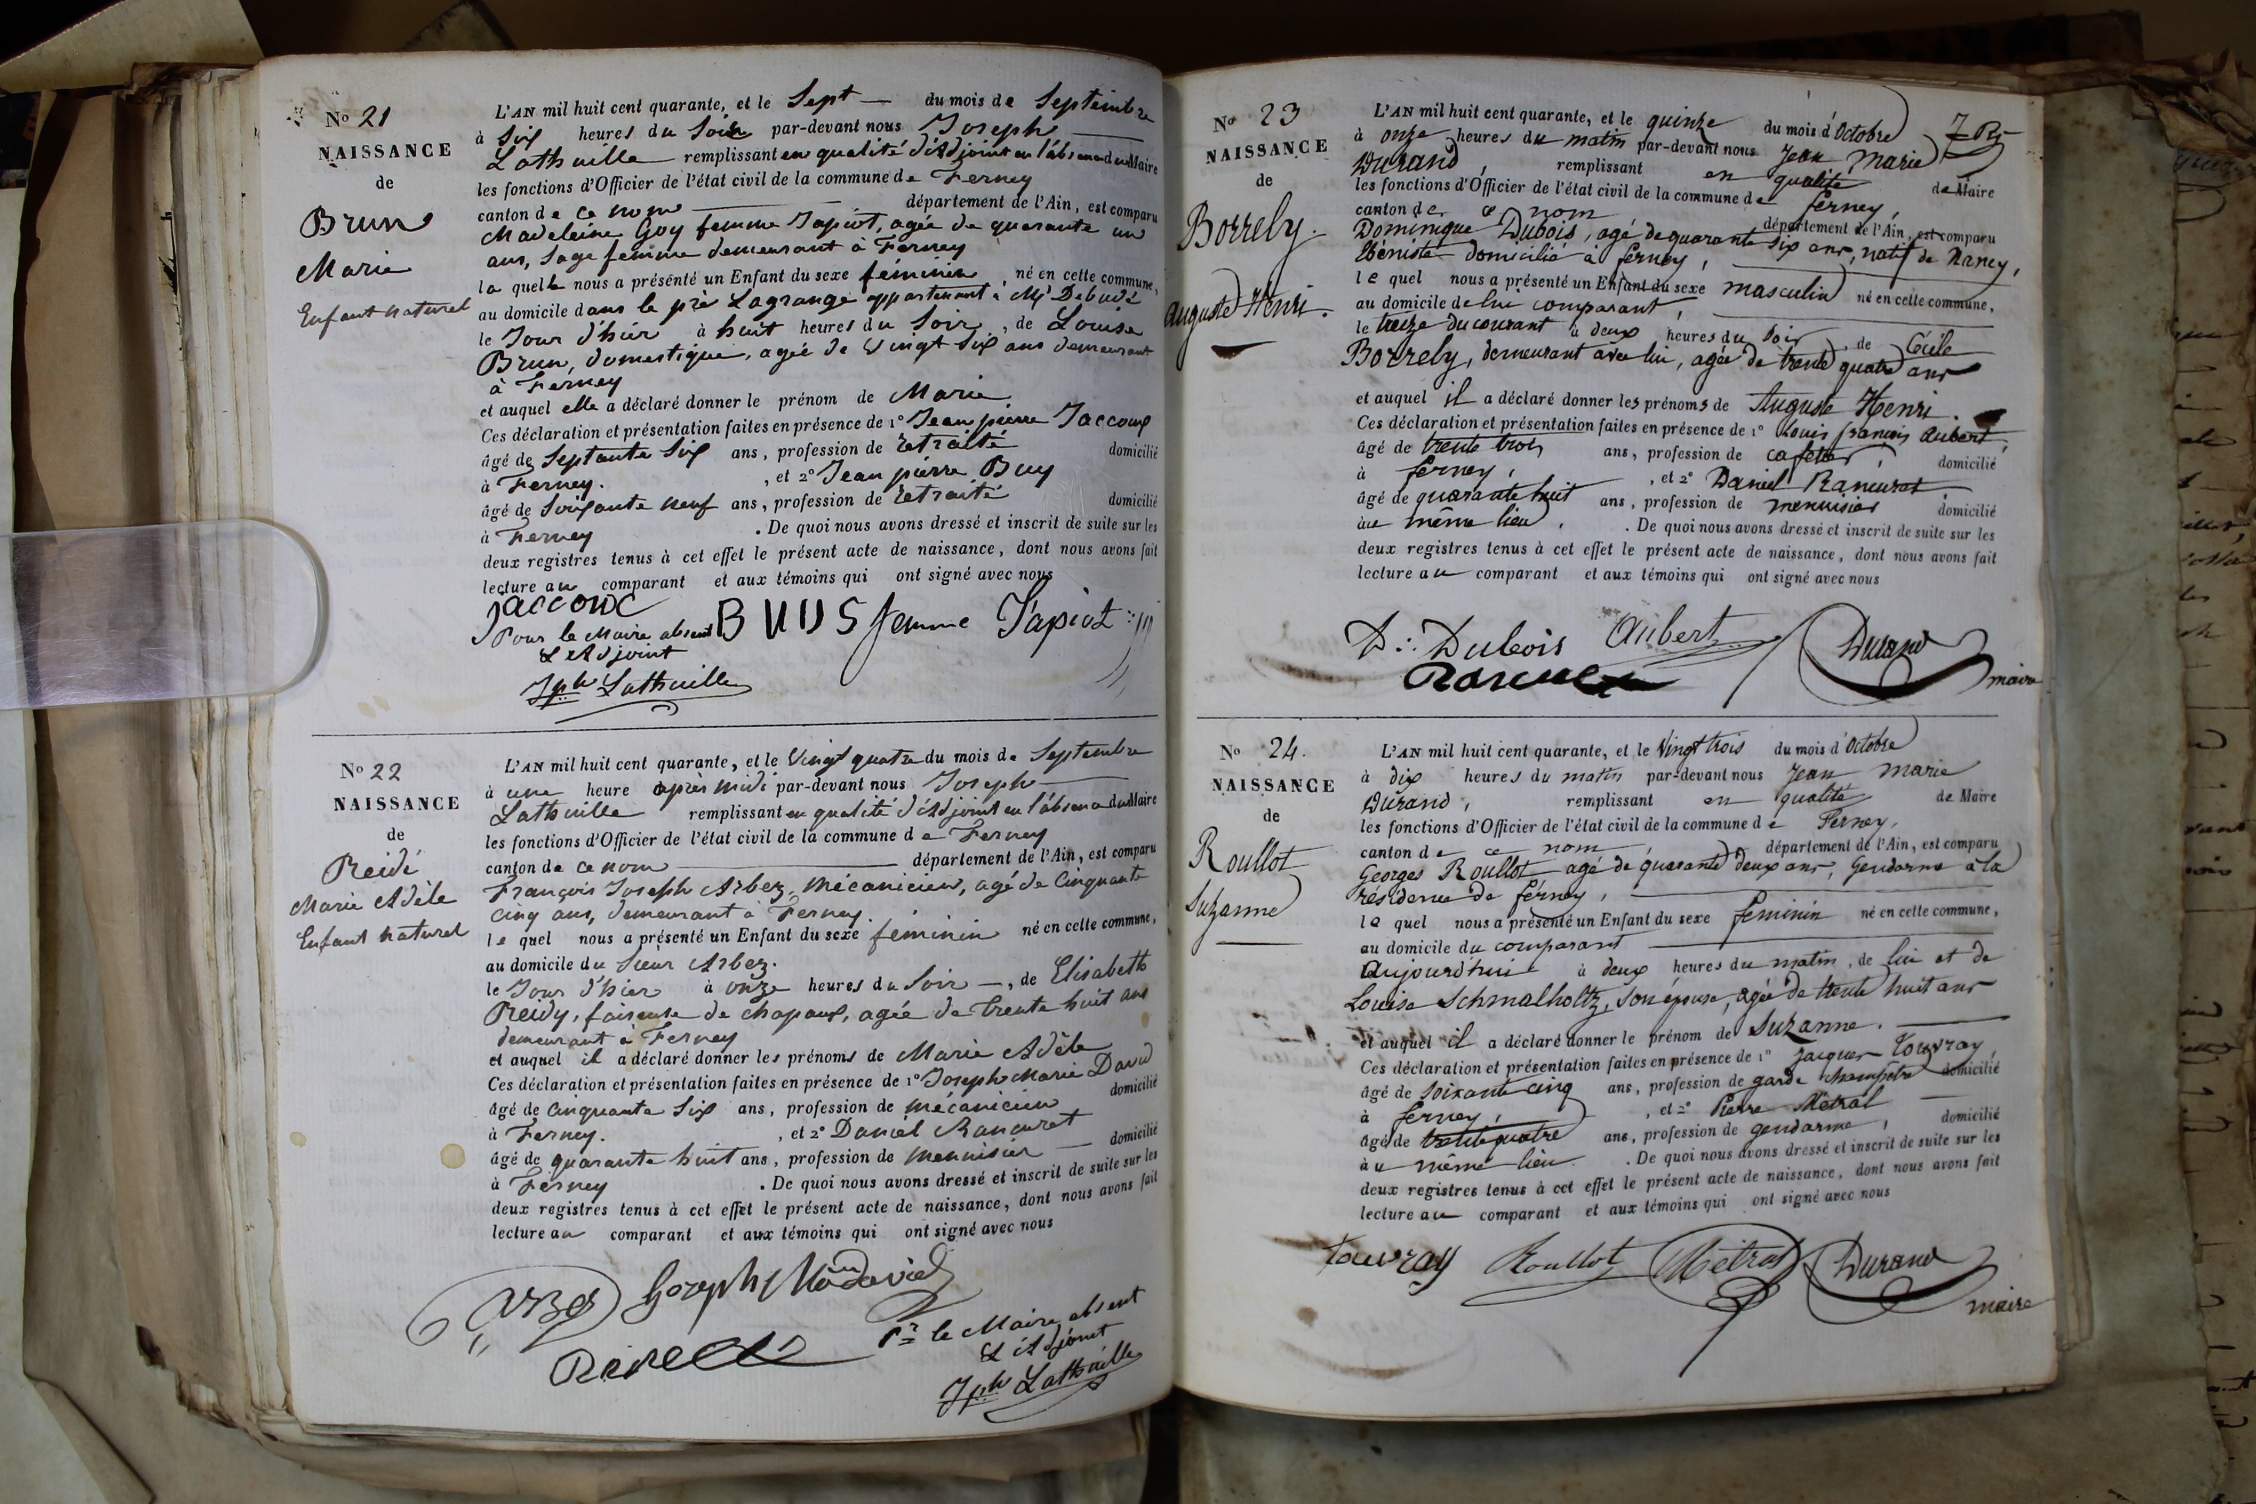 No 21
NAISSANCE
de
Brun
Marie
Enfant naturel
L'AN mil huit cent quarante, et le Sept du mois de Septembre
à Six heures du Soir par-devant nous Joseph
Lathuille remplissant en qualité d'Adjoint en l'absence du Maire
les fonctions d'Officier de l'état civil de la commune de Ferney
canton de ce nom département de l'Ain, est comparu
Madeleine Goy femme Tapiot, agée de quarante un
ans, Sage femme demeurant à Ferney
la quelle nous a présénté un Enfant du sexe féminin né en cette commune,
au domicile dans le pré Lagrange appartenant à Mr Debudé
le Jour d'hier à huit heures du Soir, de Louise
Brun, domestique, agée de Vingt Six ans demeurant
à Ferney
et auquel elle a déclaré donner le prénom de Marie
Ces déclaration et présentation faites en présence de 1° Jean pierre Jaccoux
âgé de Septante Six ans, profession de retraité domicilié
à Ferney. , et 2° Jean pierre Buy
âgé de Soixante neuf ans, profession de retraité domicilié
à Ferney . De quoi nous avons dressé et inscrit de suite sur les
deux registres tenus à cet effet le présent acte de naissance, dont nous avons fait
lecture au comparant et aux témoins qui ont signé avec nous
femme Tapiot
Pour le Maire absent
L'Adjoint
Jph Lathuille
No 22
NAISSANCE
de
Reidi
Marie Adèle
Enfant naturel
L'AN mil huit cent quarante, et le Vingt quatre du mois de Septembre
à une heure après midi par-devant nous Joseph
Lathuille remplissant en qualité d'Adjoint en l'absence du Maire
les fonctions d'Officier de l'état civil de la commune de Ferney
canton de ce nom département de l'Ain, est comparu
François Joseph Arbez, Mécanicien, agé de Cinquante
cinq ans, demeurant à Ferney.
le quel nous a présenté un Enfant du sexe féminin né en cette commune,
au domicile du Sieur Arbez.
le Jour d'hier à onze heures du Soir, de Elisabeth
Reidy, faiseuse de chapaux, agée de trente huit ans
demeurant à Ferney
et auquel il a déclaré donner les prénoms de Marie Adèle
Ces déclaration et présentation faites en présence de 1° Joseph Marie David
âgé de cinquante Six ans, profession de mécanicien domicilié
à Ferney. , et 2° Daniel Rancuret
âgé de quarante huit ans, profession de menuisier domicilié
à Ferney . De quoi nous avons dressé et inscrit de suite sur les
deux registres tenus à cet effet le présent acte de naissance, dont nous avons fait
lecture au comparant et aux témoins qui ont signé avec nous
Arbez Joseph David
Pr le Maire absent
L'Adjoint
Jph Lathuille
No 23
NAISSANCE
de
Borrely.
Auguste Henri.
L'AN mil huit cent quarante, et le quinze du mois d'Octobre
à onze heures du matin par-devant nous Jean Marie
Durand, remplissant en qualité de Maire
les fonctions d'Officier de l'état civil de la commune de ferney,
canton de ce nom département de l'Ain, est comparu
Dominique Dubois, agé de quarante six ans, natif de Nancy,
Ebéniste domicilié à ferney,
le quel nous a présenté un Enfant du sexe masculin né en cette commune,
au domicile de lui comparant,
le treize du courant à deux heures du soir, de Cécile
Borrely, demeurant avec lui, agée de trente quatre ans
et auquel il a déclaré donner les prénoms de Auguste Henri.
Ces déclaration et présentation faites en présence de 1° Louis françois Aubert
âgé de trente trois ans, profession de cafetier, domicilié
à ferney, , et 2° Daniel Rancurat
âgé de quarante huit ans, profession de menuisier domicilié
au même lieu. . De quoi nous avons dressé et inscrit de suite sur les
deux registres tenus à cet effet le présent acte de naissance, dont nous avons fait
lecture au comparant et aux témoins qui ont signé avec nous
D: Dubois Aubert Durand
maire
No 24.
NAISSANCE
de
Roullot
Suzanne
L'AN mil huit cent quarante, et le Vingt trois du mois d'Octobre
à dix heures du matin par-devant nous Jean Marie
Durand, remplissant en qualité de Maire
les fonctions d'Officier de l'état civil de la commune de Ferney,
canton de ce nom département de l'Ain, est comparu
Georges Roullot agé de quarante deux ans, Gendarme à la
résidence de ferney,
le quel nous a présenté un Enfant du sexe feminin né en cette commune,
au domicile du comparant
Aujourd'hui à deux heures du matin, de lui et de
Louise Schmalholtz, son épouse, agée de trente huit ans
et auquel il a déclaré donner le prénom de Suzanne.
Ces déclaration et présentation faites en présence de 1° Jacques Touvray,
âgé de soixante cinq ans, profession de garde champêtre domicilié
à ferney, , et 2° Pierre Métral
âgé de trente quatre ans, profession de gendarme, domicilié
au même lieu . De quoi nous avons dressé et inscrit de suite sur les
deux registres tenus à cet effet le présent acte de naissance, dont nous avons fait
lecture au comparant et aux témoins qui ont signé avec nous
Touvray Roullot Métral Durand
maire